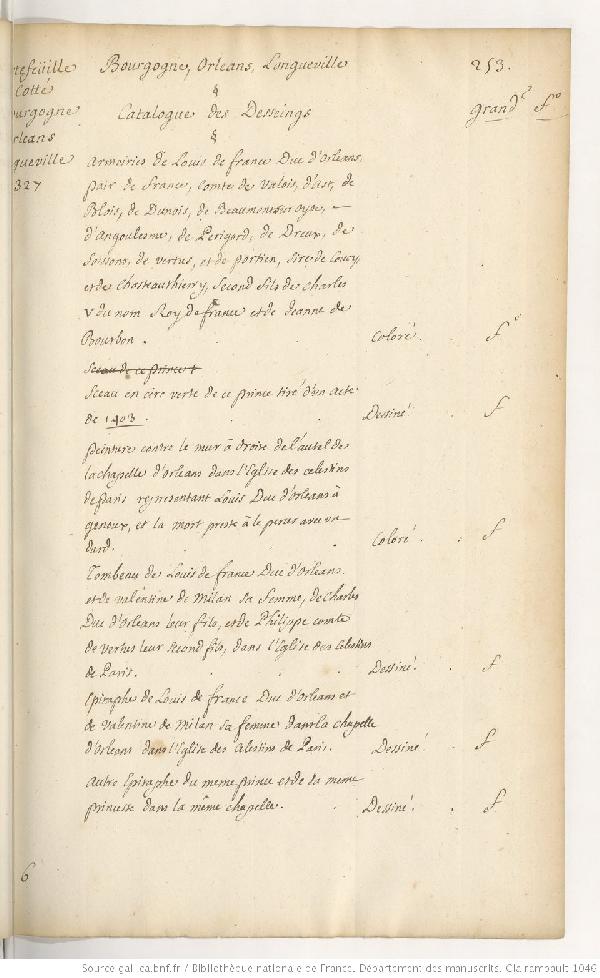 tefeüille
Cotté
ourgogne
rleans
gueville
327
Bourgogne, Orleans, Longueville
253.
§
Catalogue des Desseings
Grand.r f.o
§
Armoiries de Louis de france Duc d'Orleans,
pair de France, Comte de Valois, d'ast, de
Blois, de Dunois, de Beaumont sur oyse, —
d'Angoulesme, de Perigord, de Dreux, de
Soissons, de vertus, et de portien, sire de Coucy
et de Chasteauthierry, second fils de Charles
V du nom Roy de france et de Jeanne de
Bourbon . Coloré . f.o
Sceau de ce prince t
Sceau en cire verte de ce prince tiré d'un acte
de 1403 . Dessiné . f
peinture contre le mur a droite de l'autel de
la chapelle d'orleans dans l'Eglise des celestins
de paris representant Louis Duc d'Orleans à
genoux, et la mort preste à le percer avec un
dard. Coloré . . f
Tombeau de Louis de france Duc d'Orleans
et de valentine de Milan sa femme, de Charles
Duc d'Orleans leur fils, et de Philippe comte
de vertus leur second fils, dans l'Eglise des Celestins
de Paris. Dessiné . f
Epitaphe de Louis de france Duc d'Orleans et
de Valentine de Milan sa femme dans la chapelle
d'orleans dans l'Eglise des Celestins de Paris. Dessiné . f
Autre Epitaphe du meme prince et de la meme
princesse dans la même chapelle. Dessiné . f
6
Source gallica.bnf.fr / Bibliothèque nationale de France. Département des manuscrits. Clairambault 1046